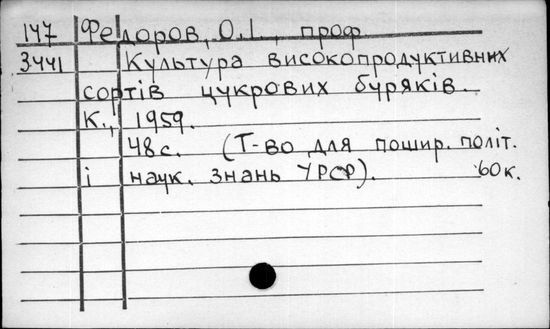 147 Федоров, О.І., проф
3441 Культура високопродуктивних
сортів цукрових буряків.
К., 1959.
48с. (Т-во для пошир. політ.
і наук. знань УРСР). 60к.